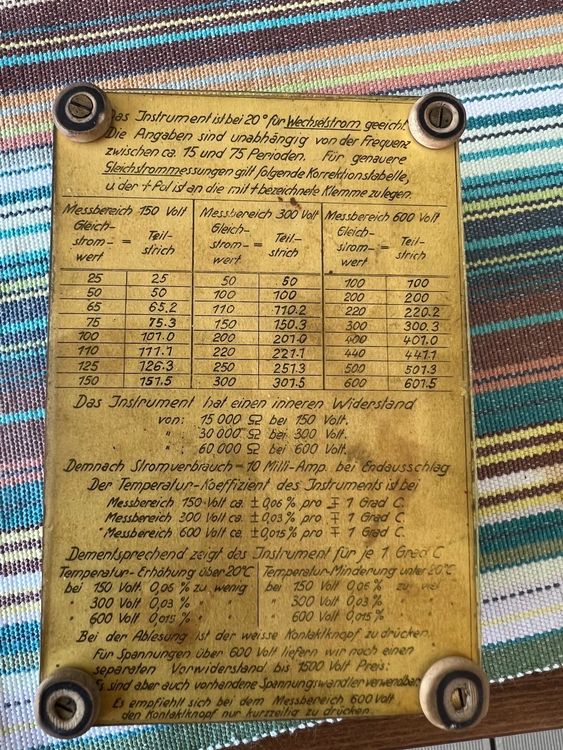 Das Instrument ist bei 20° für Wechselstrom geeicht.
Die Angaben sind unabhängig von der Frequenz
zwischen ca. 15 und 75 Perioden. Für genauere
Gleichstrommessungen gilt folgende Korrektionstabelle,
u. der + Pol ist an die mit + bezeichnete Klemme zu legen.
Messbereich 150 Volt Messbereich 300 Volt Messbereich 600 Volt
Gleich- Gleich- Gleich-
strom- = Teil- strom- = Teil- strom- = Teil-
wert strich wert strich wert strich
25 25 50 50 100 100
50 50 100 100 200 200
65 65.2 110 110.2 220 220.2
75 75.3 150 150.3 300 300.3
100 101.0 200 201.0 400 401.0
110 111.1 220 221.1 440 441.1
125 126.3 250 251.3 500 501.3
150 151.5 300 301.5 600 601.5
Das Instrument hat einen inneren Widerstand
von: 15 000 Ω bei 150 Volt.
" 30 000 Ω bei 300 Volt.
" 60 000 Ω bei 600 Volt.
Demnach Stromverbrauch – 10 Milli-Amp. bei Endausschlag
Der Temperatur-Koeffizient des Instruments ist bei
Messbereich 150 Volt ca. ± 0,06 % pro ∓ 1 Grad C.
Messbereich 300 Volt ca. ± 0,03 % pro ∓ 1 Grad C.
Messbereich 600 Volt ca. ± 0,015 % pro ∓ 1 Grad C.
Dementsprechend zeigt das Instrument für je 1 Grad C
Temperatur-Erhöhung über 20°C Temperatur-Minderung unter 20°C
bei 150 Volt 0,06 % zu wenig bei 150 Volt 0,06 % zu viel
" 300 Volt 0,03 % " " " 300 Volt 0,03 % " "
" 600 Volt 0,015 % " " " 600 Volt 0,015 % " "
Bei der Ablesung ist der weisse Kontaktknopf zu drücken.
Für Spannungen über 600 Volt liefern wir noch einen
separaten Vorwiderstand bis 1500 Volt Preis:
Es sind aber auch vorhandene Spannungswandler verwendbar.
Es empfiehlt sich bei dem Messbereich 600 Volt
den Kontaktknopf nur kurzzeitig zu drücken.